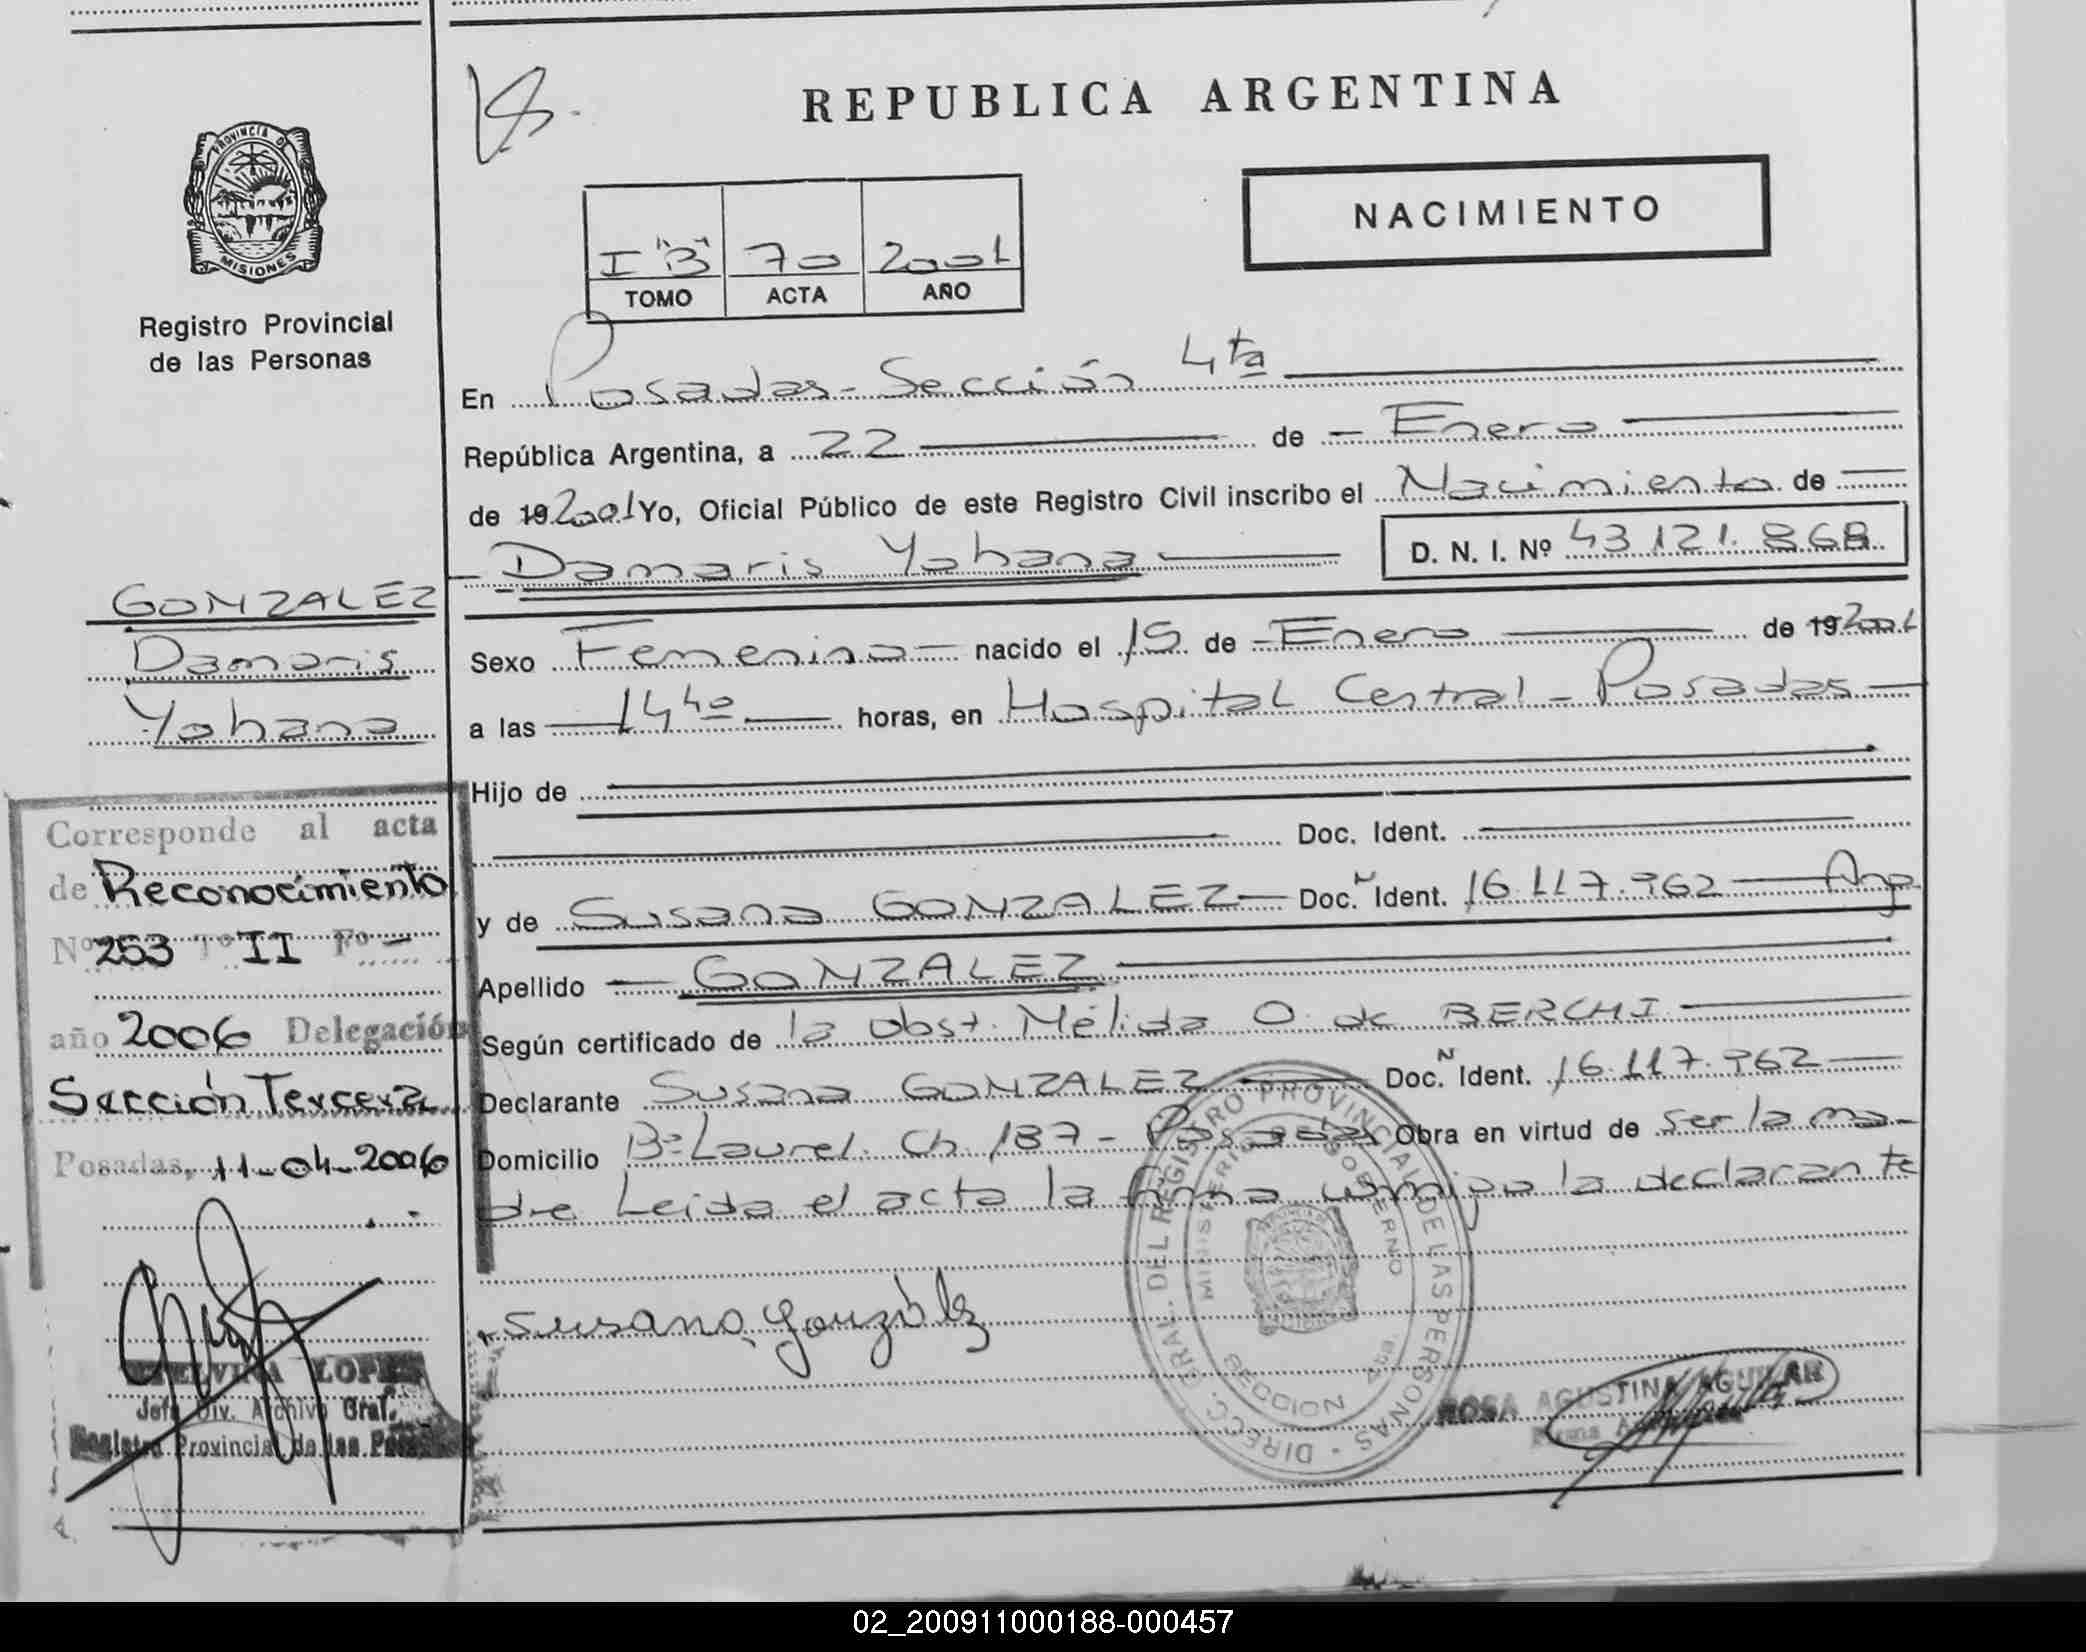 REPUBLICA ARGENTINA
PROVINCIA DE
MISIONES
Registro Provincial
de las Personas
NACIMIENTO
I "B" 70 2001
TOMO ACTA AÑO
En Posadas - Sección 4ta
República Argentina, a 22 de - Enero
de 19 2001 Yo, Oficial Público de este Registro Civil inscribo el Nacimiento de
- Damaris Yohana D. N. I. Nº 43 121. 868
GONZALEZ
Damaris
Yohana
Sexo Femenino nacido el 15 de - Enero de 19 2001
a las 14 40 horas, en Hospital Central - Posadas
Hijo de
Doc. Ident.
y de Susana GONZALEZ Doc. N Ident. 16.117.962 Arg
Apellido GONZALEZ
Según certificado de la obst. Nélida O. de BERCHI
Declarante Susana GONZALEZ Doc. N Ident. 16.117.962
Domicilio Bº Laurel. Ch 187 - Posadas Obra en virtud de ser la ma-
dre Leida el acta la firma conmigo la declarante
Susana González
Corresponde al acta
de Reconocimiento
Nº 253 Tº II Fº -
año 2006 Delegación
Sección Tercera
Posadas, 11-04-2006
ETELVINA LOPEZ
Jefa Div. Archivo Gral.
Registro Provincial de las Pers.
DIRECC. GRAL. DEL REGISTRO PROVINCIAL DE LAS PERSONAS
MINISTERIO DE GOBIERNO
SECCION 4ta
MISIONES
ROSA AGUSTINA AGUILAR
Firma
02_200911000188-000457